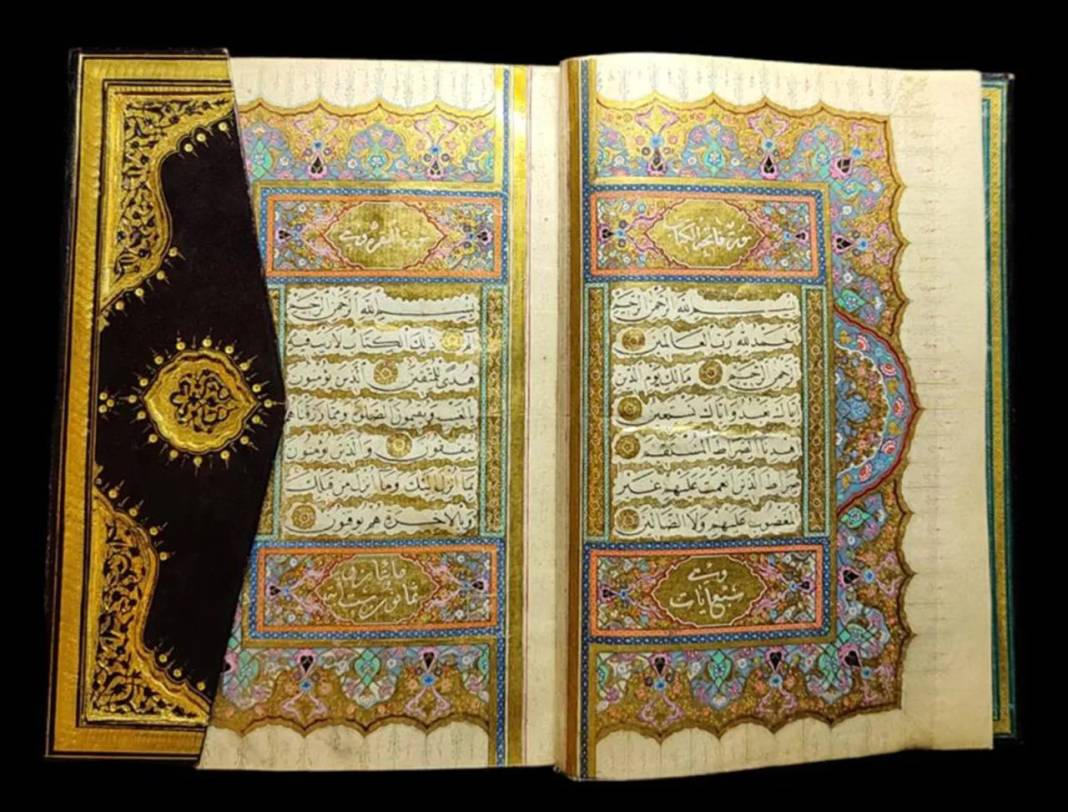 سورة فاتحة الكتاب
بسم الله الرحمن الرحيم
الحمد لله رب العالمين
الرحمن الرحيم مالك يوم الدين
اياك نعبد واياك نستعين
اهدنا الصراط المستقيم
صراط الذين انعمت عليهم غير
المغضوب عليهم ولا الضالين
وهي
سبع ايات
سورة البقرة وهي
بسم الله الرحمن الرحيم
الم ذلك الكتاب لا ريب فيه
هدى للمتقين الذين يؤمنون
بالغيب ويقيمون الصلوة ومما رزقناهم
ينفقون والذين يؤمنون
بما انزل اليك وما انزل من قبلك
وبالاخرة هم يوقنون
مايتان و
ثمانون وست اية